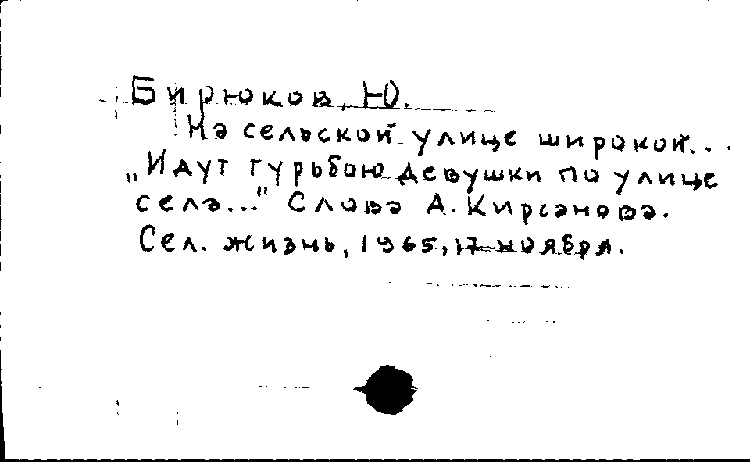 Бирюков, Ю.
На сельской улице широкой...
„Идут гурьбою девушки по улице
села..." Слова А. Кирсанова.
Сел. жизнь, 1965, 17 ноября.